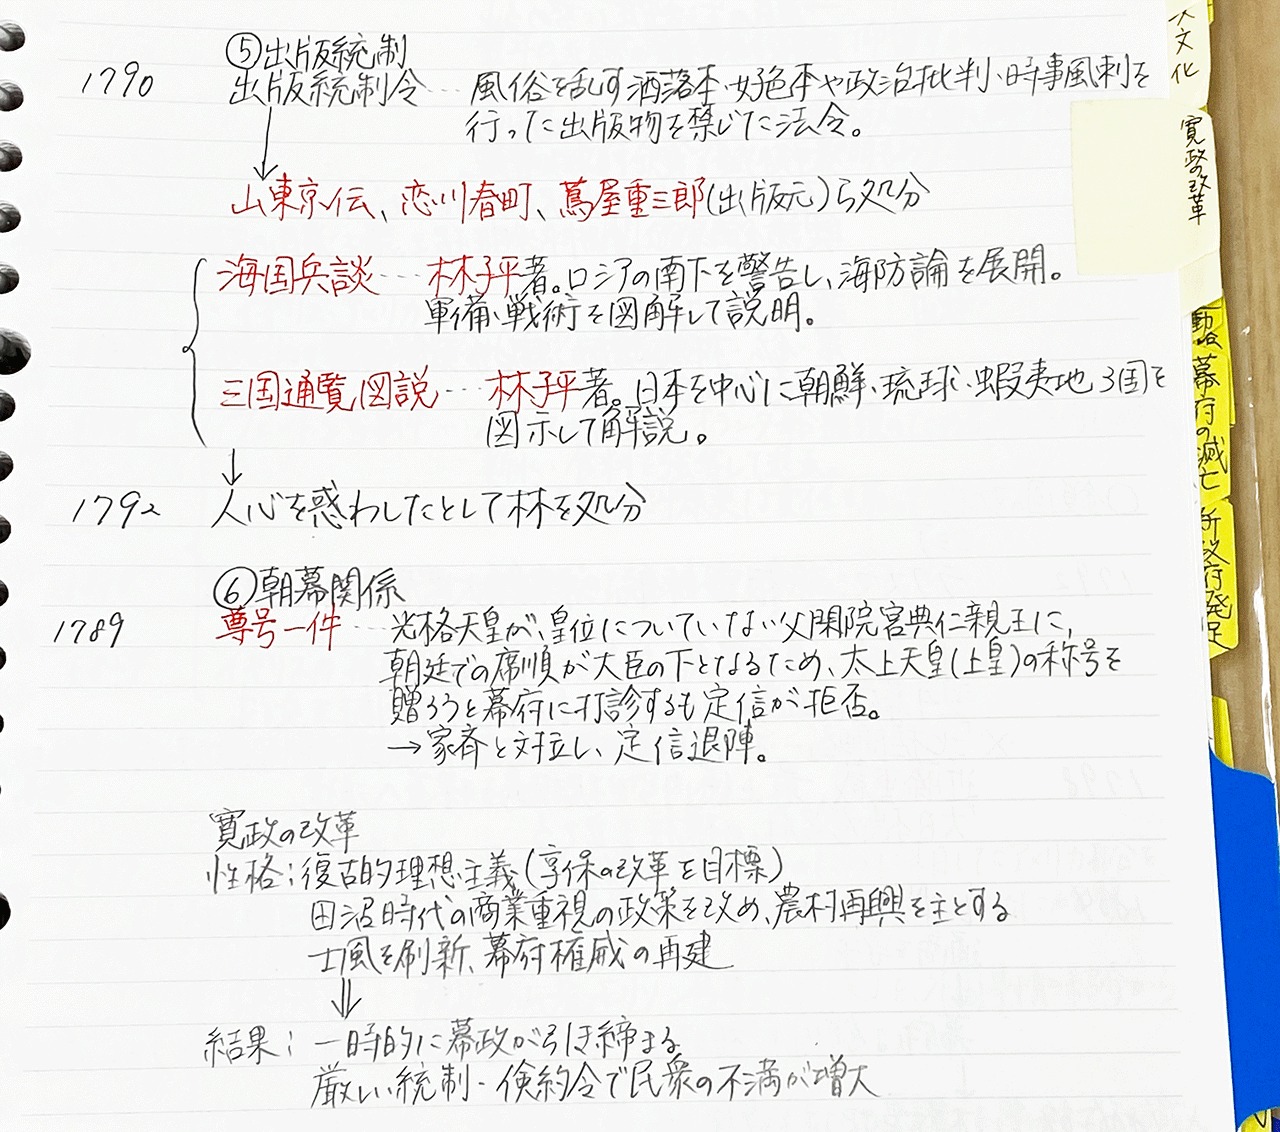 ⑤出版統制
1790 出版統制令… 風俗を乱す洒落本・好色本や政治批判・時事風刺を
行った出版物を禁じた法令。
↓
山東京伝、恋川春町、蔦屋重三郎(出版元)ら処分
海国兵談…林子平著。ロシアの南下を警告し、海防論を展開。
軍備・戦術を図解して説明。
三国通覧図説…林子平著。日本を中心に朝鮮・琉球・蝦夷地3国を
図示して解説。
↓
1792 人心を惑わしたとして林を処分
⑥朝幕関係
1789 尊号一件…光格天皇が、皇位についていない父閑院宮典仁親王に、
朝廷での席順が大臣の下となるため、太上天皇(上皇)の称号を
贈ろうと幕府に打診するも定信が拒否。
→家斉と対立し、定信退陣。
寛政の改革
性格:復古的理想主義(享保の改革を目標)
田沼時代の商業重視の政策を改め、農村再興を主とする
士風を刷新、幕府権威の再建
⇓
結果:一時的に幕政が引き締まる
厳しい統制・倹約令で民衆の不満が増大
文化
寛政の改革
幕府の滅亡
新政府発足